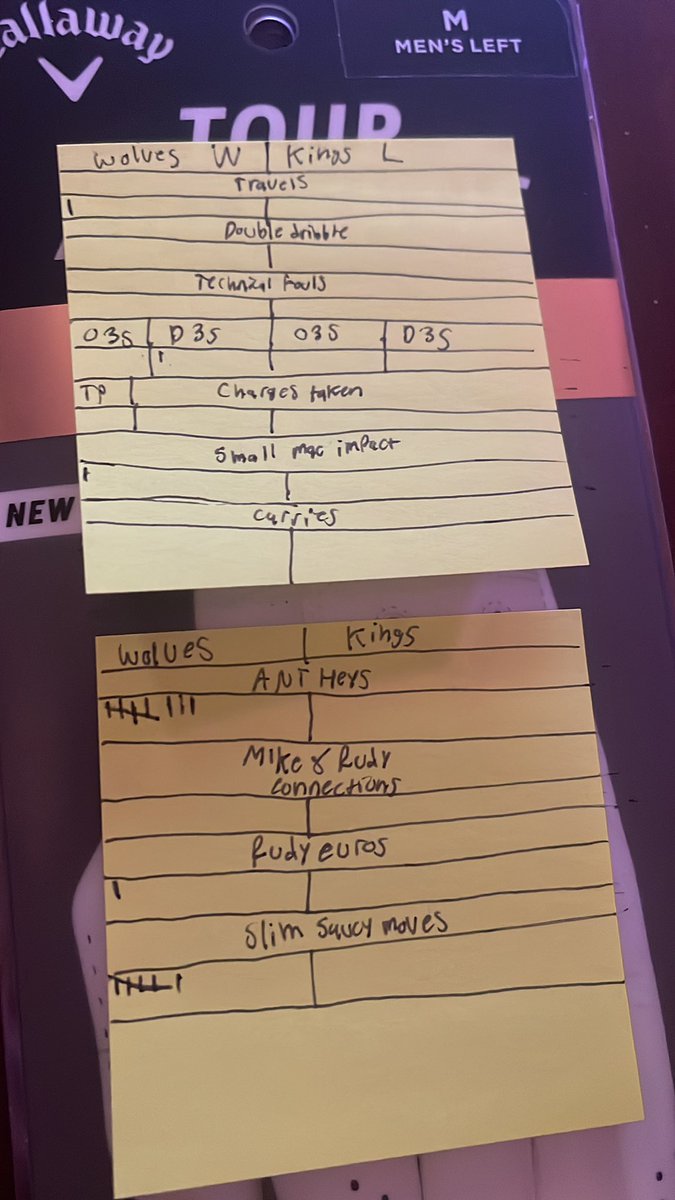 Callaway
M
MEN'S LEFT
TOUR
NEW
Wolves W | Kings L
Travels
I
Double dribble
Technical fouls
O3S | D3S | O3S | D3S
I
TP | Charges taken
Small mac impact
I
Carries
Wolves | Kings
ANT Heys
卌 III
Mike & Rudy
connections
Rudy euros
I
Slim Saucy moves
卌 I